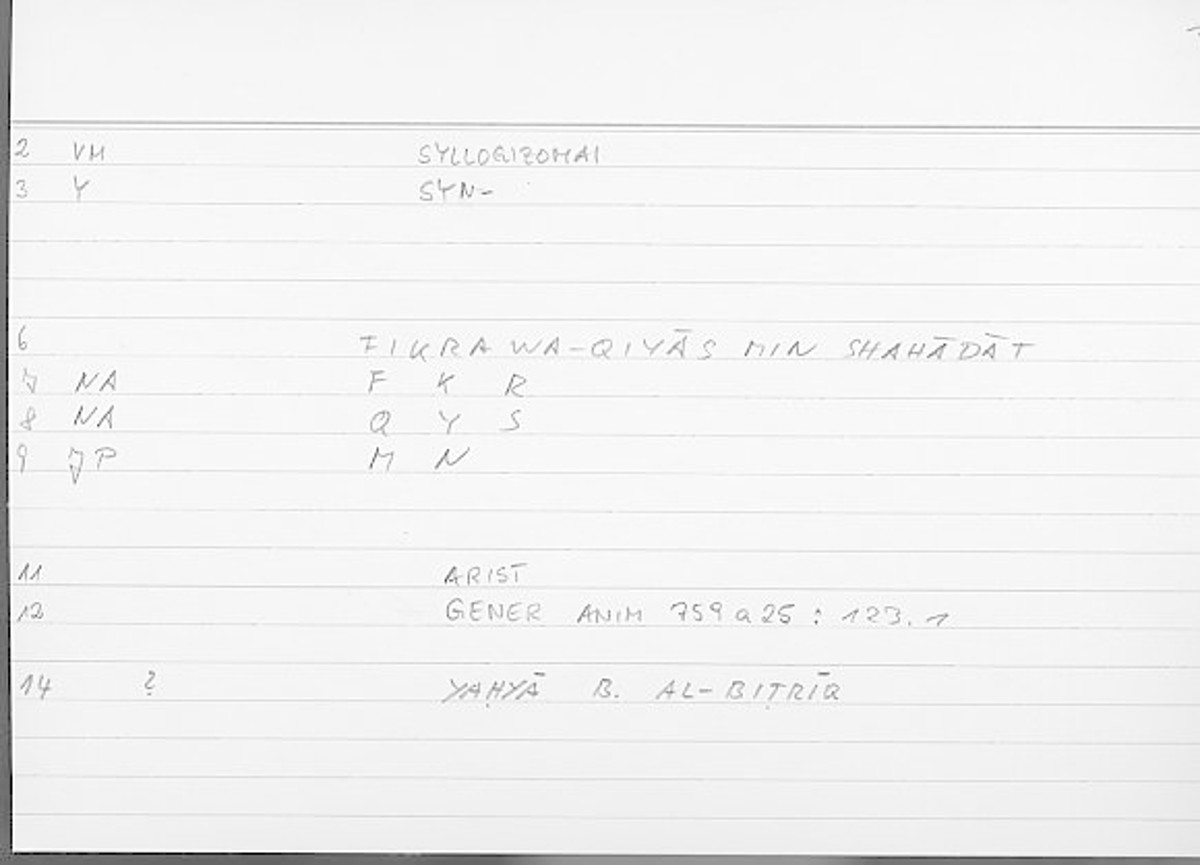 2 VM SYLLOGIZOMAI
3 Y SYN-
6 FIKRA WA-QIYĀS MIN SHAHĀDĀT
7 NA F K R
8 NA Q Y S
9 JP M N
11 ARIST
12 GENER ANIM 759a25 : 123.1
14 ? YAḤYĀ B. AL-BIṬRĪQ